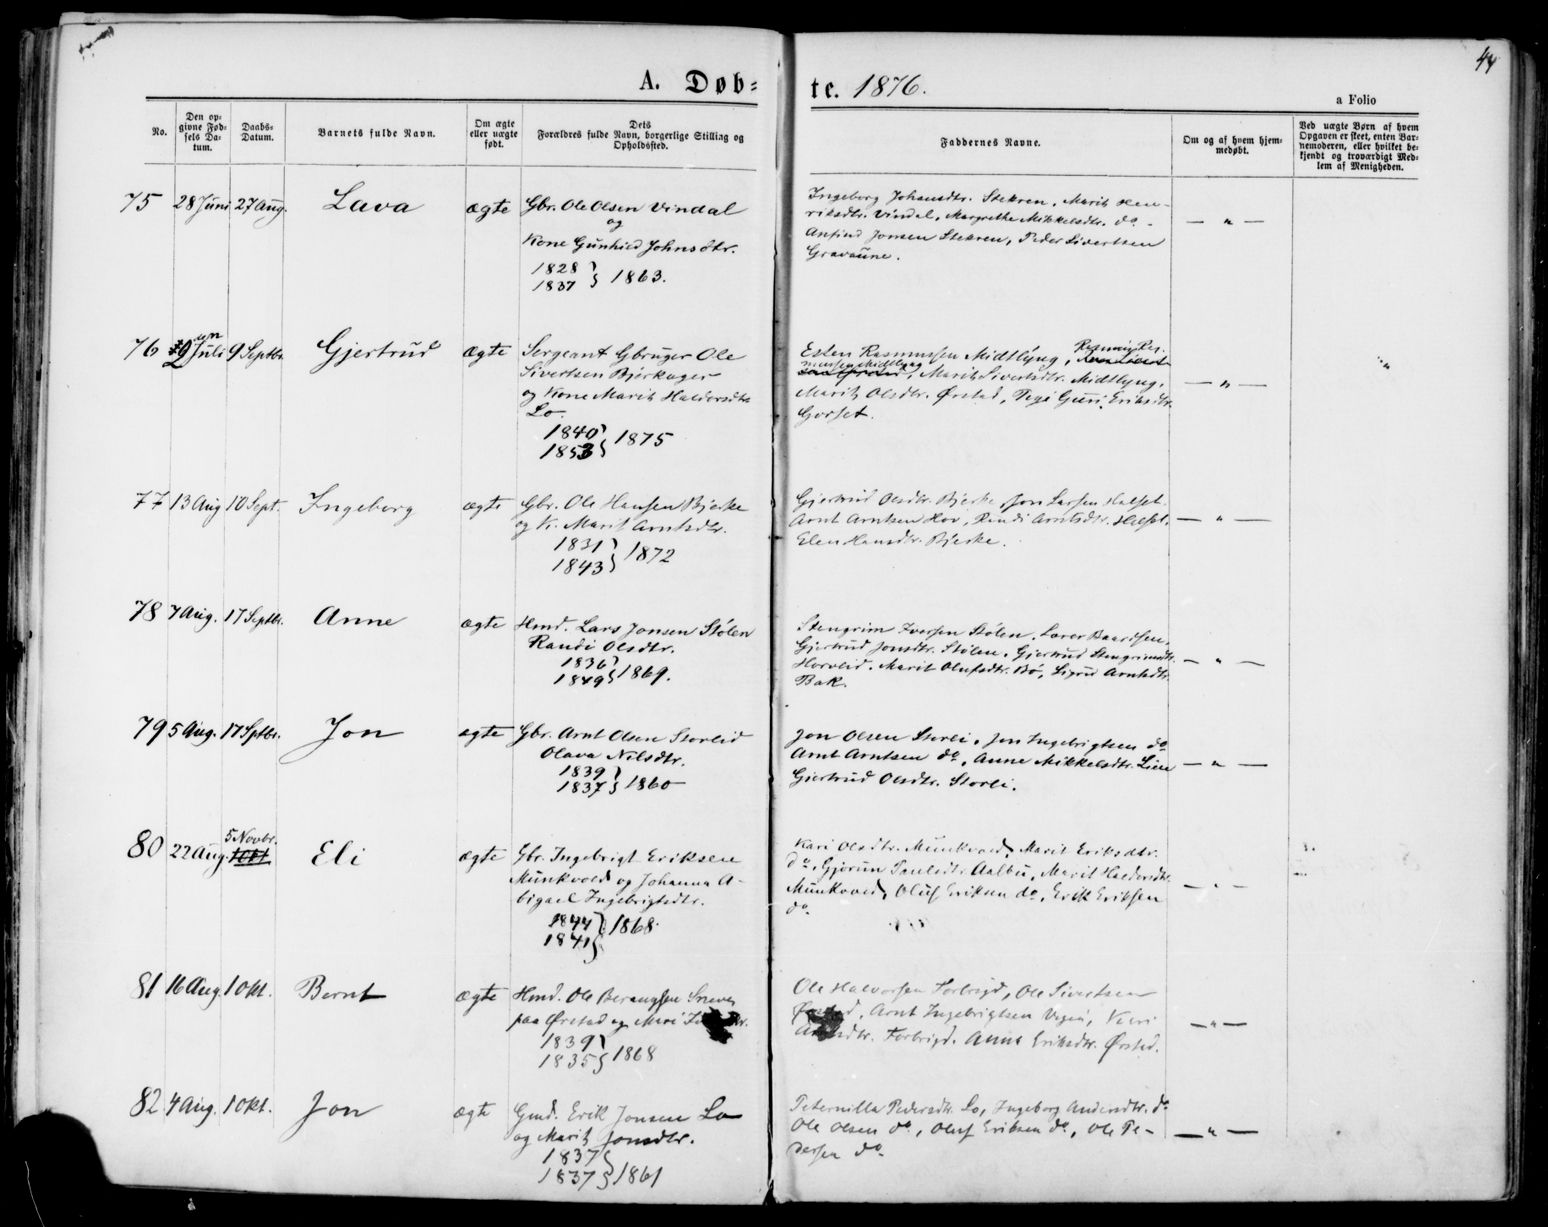 44
A. Døbte. 1876.
a Folio
No.
Den opgivne Fødsels Datum.
Daabs-Datum.
Barnets fulde Navn.
Om ægte eller uægte født.
Dets Forældres fulde Navn, borgerlige Stilling og Opholdssted.
Faddernes Navne.
Om og af hvem hjemmedøbt.
Ved uægte Børn af hvem Opgaven er skeet, enten Barnemoderen, eller hvilket bekjendt og troværdigt Medlem af Menigheden.
75 28 Juni 27 Aug. Lava ægte Gbr. Ole Olsen Vindal
og
Kone Gunhild Johnsdtr.
1828
1837 } 1863.
Ingeborg Johansdtr. Stekren, Marit Hen-
riksdtr. Vindal, Margrethe Mikkelsdtr. do.
Anfind Jonsen Stekren, Peder Sivertsen
Gravaune.
— " —
76 9 Juli 9 Septbr. Gjertrud ægte Sergeant Gbruger Ole
Sivertsen Bjerkager
og Kone Marit Haldorsdtr.
Lo.
1840
1853 } 1875
Esten Rasmussen Midtlyng, Rasmus Ras-
mussen Midtlyng, Marit Sivertsdtr. Midtlyng,
Marit Olsdtr. Ørstad, Pige Guri Eriksdtr.
Gorset.
— " —
77 13 Aug 10 Sept. Ingeborg ægte Gbr. Ole Hansen Bjerke
og K. Marit Arntsdtr.
1831
1843 } 1872
Gjertrud Olsdtr. Bjerke, Jon Larsen Halset
Arnt Arntsen Hov, Randi Arntsdtr. Halset.
Elen Hansdtr. Bjerke.
— " —
78 7 Aug. 17 Septbr. Anne ægte Hmd. Lars Jonsen Stølen
Randi Olsdtr.
1836
1849 } 1869.
Stengrim Iversen Stølen, Laver Baardsen,
Gjertrud Jonsdtr. Stølen, Gjertrud Stengrimsdtr.
Horvlid. Marit Olufsdtr. Bø, Sigrid Arntsdtr.
Bak.
— " —
79 5 Aug. 17 Sptbr. Jon ægte Gbr. Arnt Olsen Storlid
Olava Nilsdtr.
1839
1837 } 1860
Jon Olsen Storli, Jon Ingebrigtsen do
Arnt Arntsen do, Anne Mikkelsdtr. Lien
Gjertrud Olsdtr. Storli.
— " —
80 22 Aug. 5 Novbr. Eli ægte Gbr. Ingebrigt Eriksen
Munkvold og Johanna A-
bigael Ingebrigtsdtr.
1844
1841 } 1868.
Kari Olsdtr. Munkvold, Marit Eriksdtr.
do, Gjørun Paulsdtr. Aalbu, Marit Haldorsdtr.
Munkvold, Oluf Eriksen do, Erik Eriksen
do.
— " —
81 16 Aug. 1 Okt. Bernt ægte Hmd. Ole
paa Ørstad og Mari
1839
1835 } 1868
Ole Halvorsen Forbrigd, Ole Sivertsen
Ørstad, Arnt Ingebrigtsen, Kari
Arntsdtr. Forbrigd. Anne Eriksdtr. Ørstad.
— " —
82 4 Aug. 1 Okt. Jon ægte Gmd. Erik Jonsen Lo
og Marit Jonsdtr.
1837
1837 } 1861
Peternilla Pedersdtr. Lo, Ingeborg Andersdtr. do
Ole Olsen do, Oluf Eriksen do, Ole Pe-
dersen do.
— " —